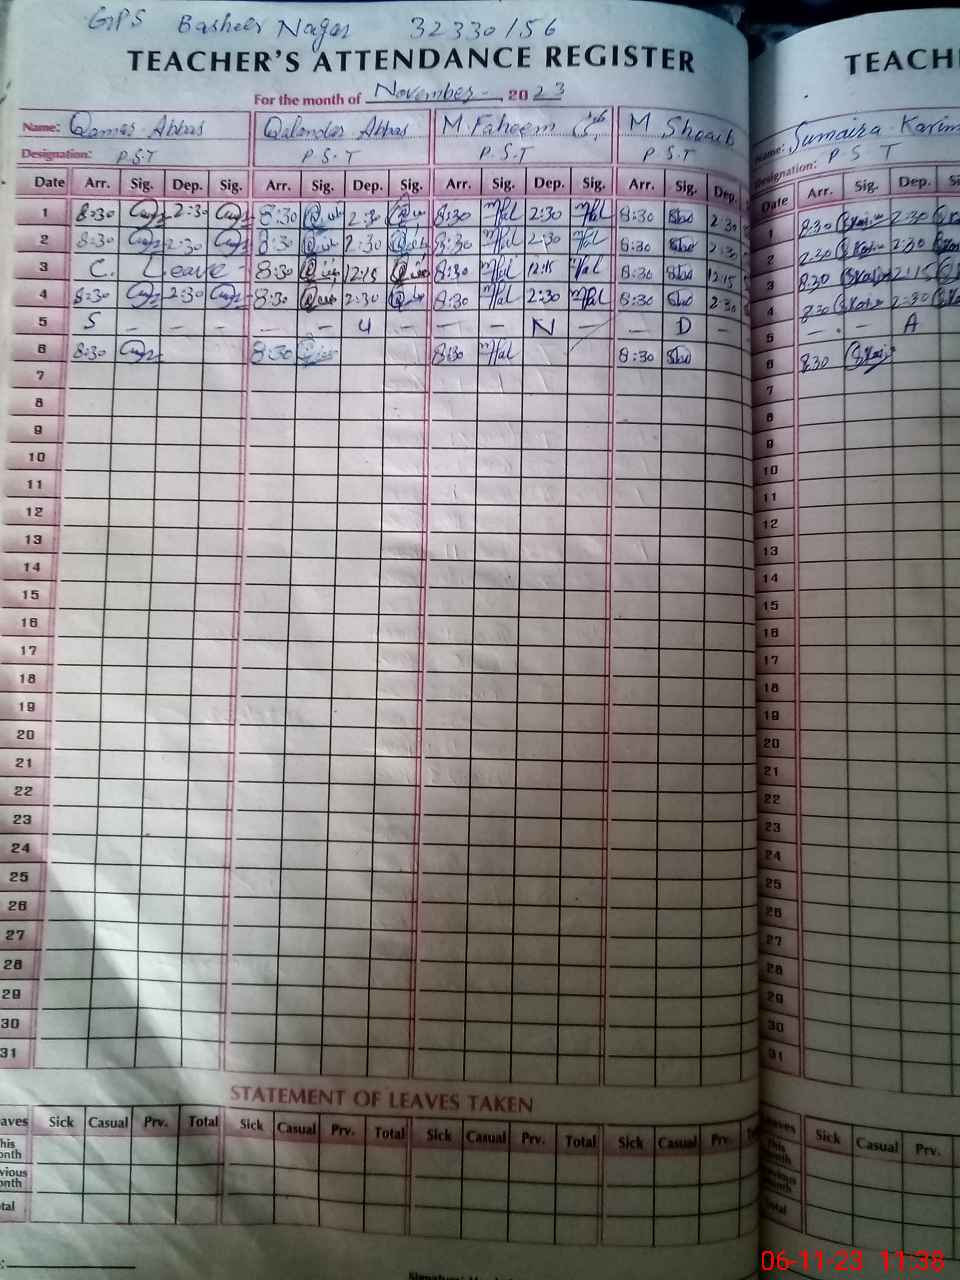 GPS Basheer Nagar 32330156
TEACHER'S ATTENDANCE REGISTER
For the month of November 2023
Name: Qamar Abbas Qalander Abbas M. Faheem M Shoaib
Designation: P.S.T P.S.T P.S.T P.S.T
Date Arr. Sig. Dep. Sig. Arr. Sig. Dep. Sig. Arr. Sig. Dep. Sig. Arr. Sig. Dep.
1 8:30 2:30 8:30 2:30 8:30 2:30 8:30 2:30
2 8:30 2:30 8:30 2:30 8:30 2:30 8:30 2:30
3 C. Leave - 8:30 12:15 8:30 12:15 8:30 12:15
4 8:30 2:30 8:30 2:30 8:30 2:30 8:30 2:30
5 S - - - - - U - - - N - D -
6 8:30 8:30 8:30 8:30
7
8
9
10
11
12
13
14
15
16
17
18
19
20
21
22
23
24
25
26
27
28
29
30
31
STATEMENT OF LEAVES TAKEN
aves Sick Casual Prv. Total Sick Casual Prv. Total Sick Casual Prv. Total Sick Casual Prv.
his onth
vious onth
tal
TEACH
Name: Sumaira Karim
Designation: P S T
Date Arr. Sig. Dep. Si
1 8:30 2:30
2 2:30 2:30
3 8:30 12:15
4 8:30 2:30
5 - - A
6 8:30
7
8
9
10
11
12
13
14
15
16
17
18
19
20
21
22
23
24
25
26
27
28
29
30
31
Leaves Sick Casual Prv.
This month
Previous month
Total
06-11-23 11:38